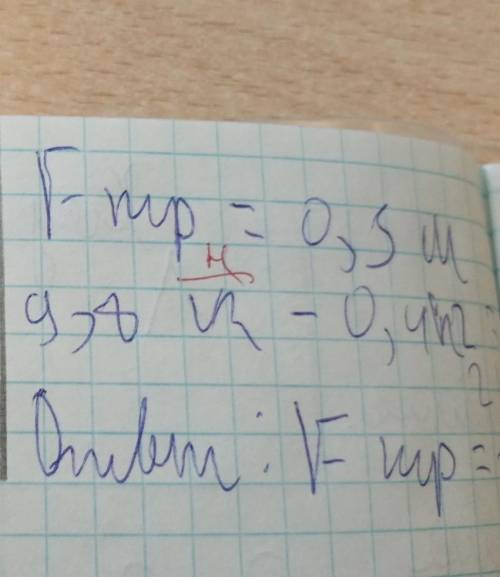 F тр = 0,5 м
н
9,8 кг - 0,4
Ответ: F тр =